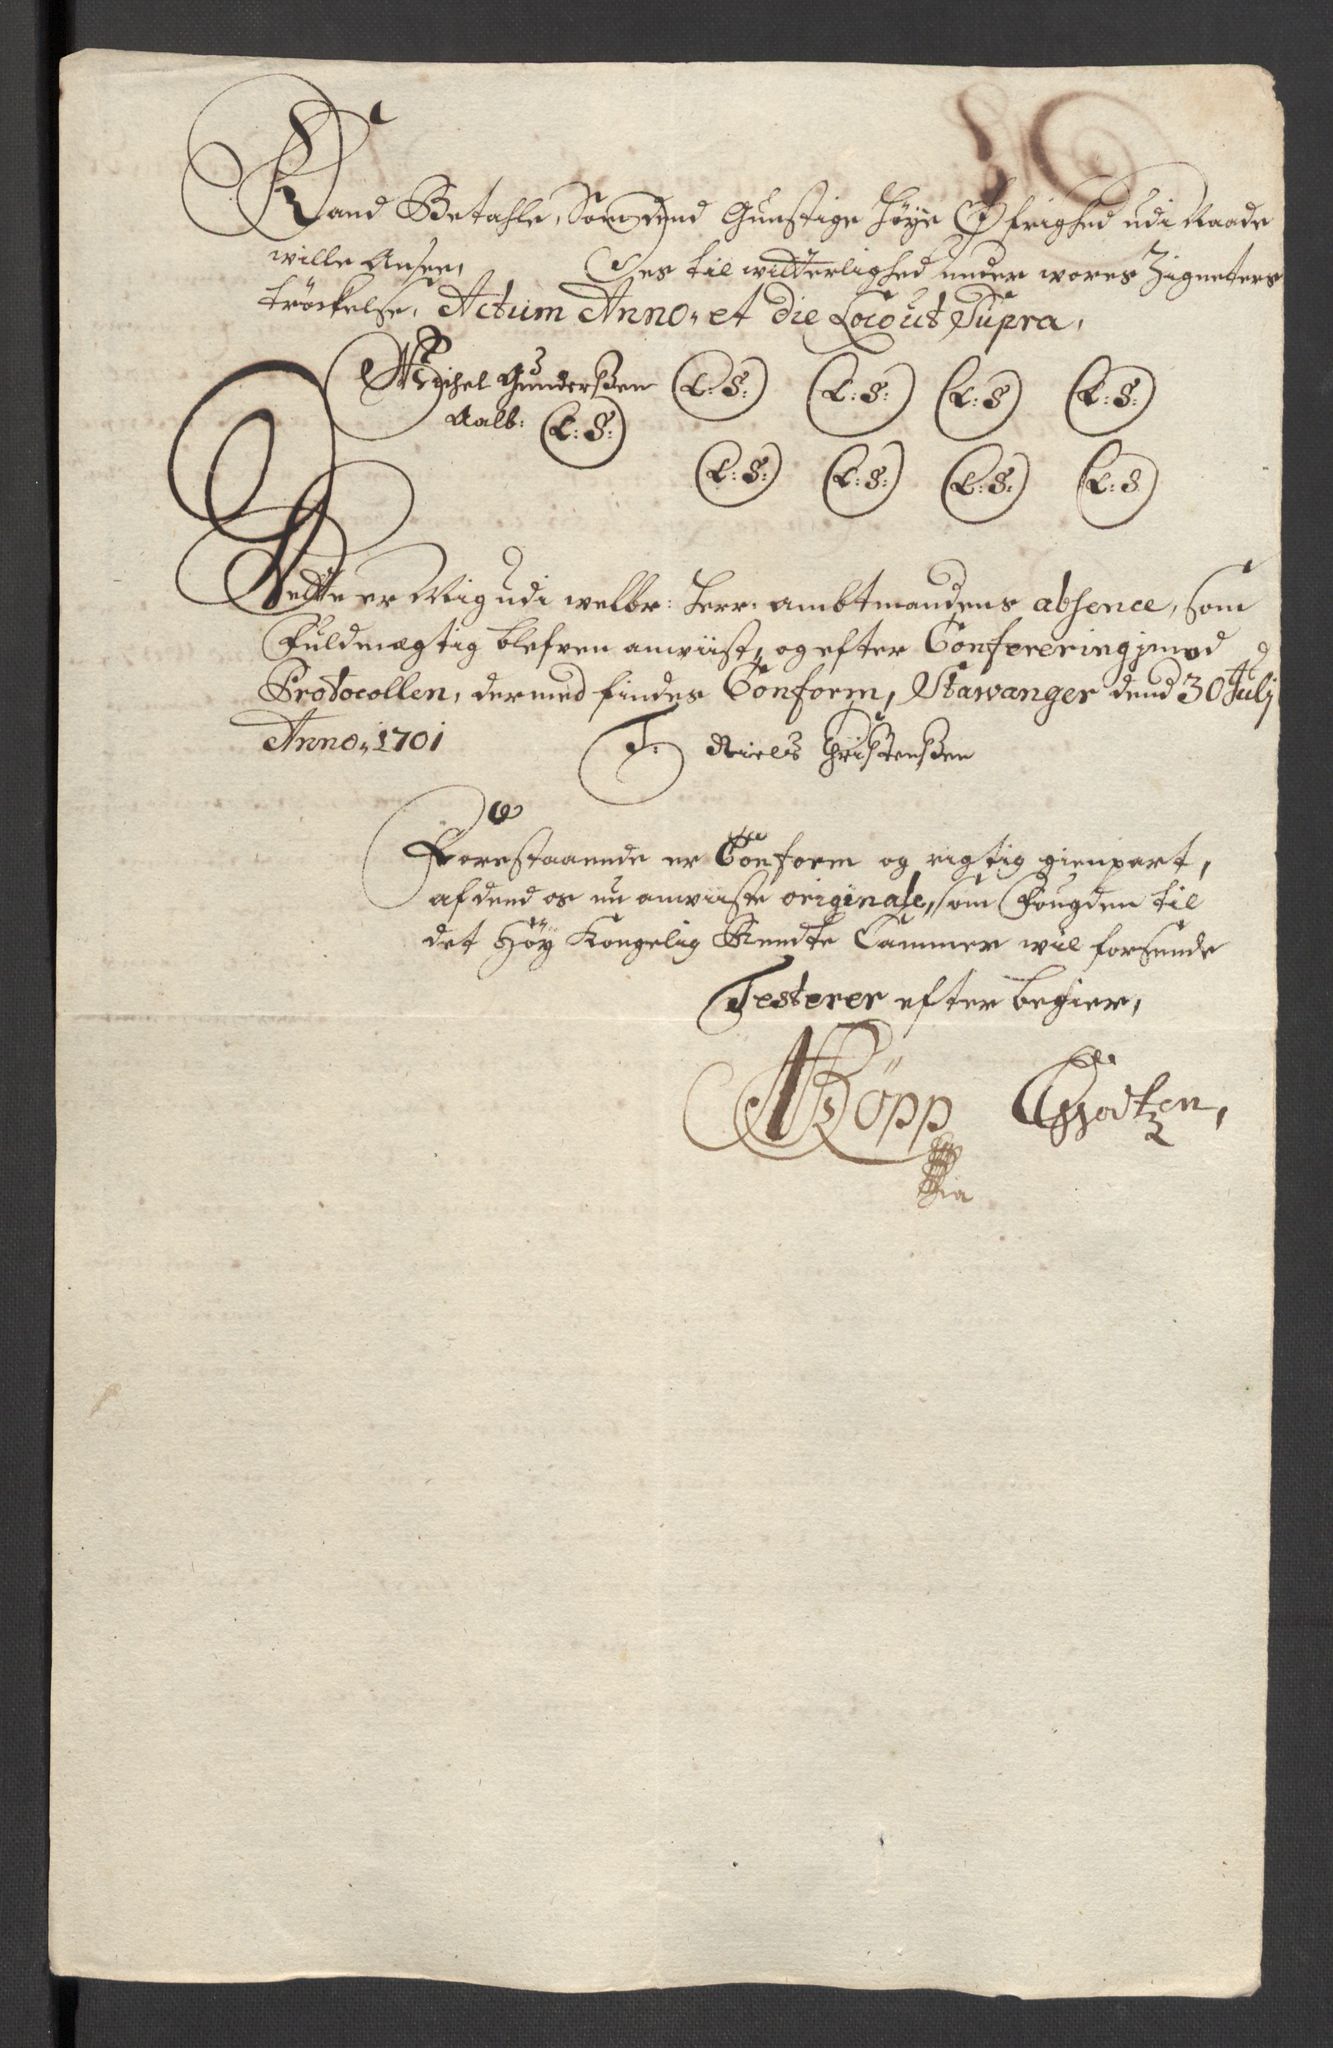 Kand Betahle, Som dend Gunstige Høye Øfrighed udi Naade
wille Ansee, Des til witterlighed under wores Zigneters
tröckelse, Actum Anno, et die Loco ut Supra,
Michel Gunderßen L: S: L: S: L: S L: S:
Aalb: L: S:
L: S: L: S: L: S: L: S
Dette er Mig udi welbr: Herr: ambtmandens absence, som
Fuldmægtig blefven anviist, og efter Confererinng imod
Protocollen, dermed findes Conform, Stawanger dend 30 Julj
Anno, 1701 T: Niels Christenßen
Forestaaende er Conform og rigtig gienpart,
af dend os nu anviiste originale, som Fougden til
det Høy Kongelig Rendte Cammer wil forsende
Testerer efter begier,
Röpp